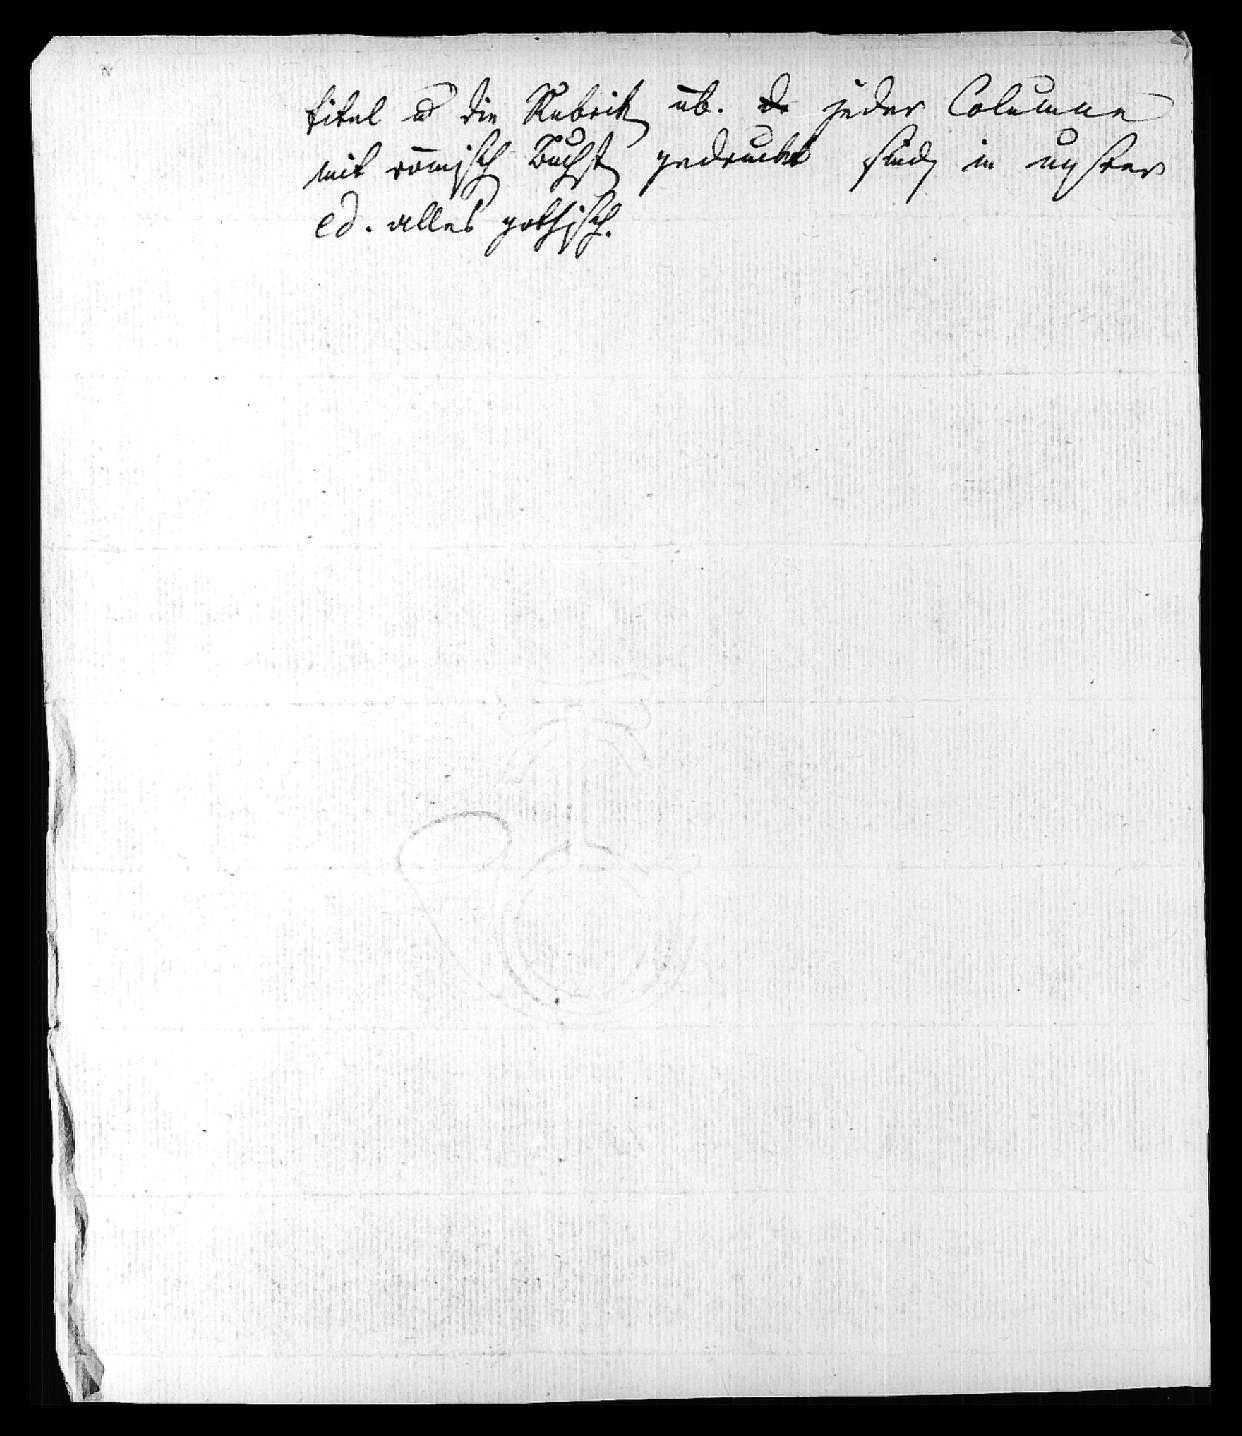 titel u die Rubrik üb. de jeder Columne
mit römisch Buchst gedruckt sind, in unsrer
ed. alles gothisch.